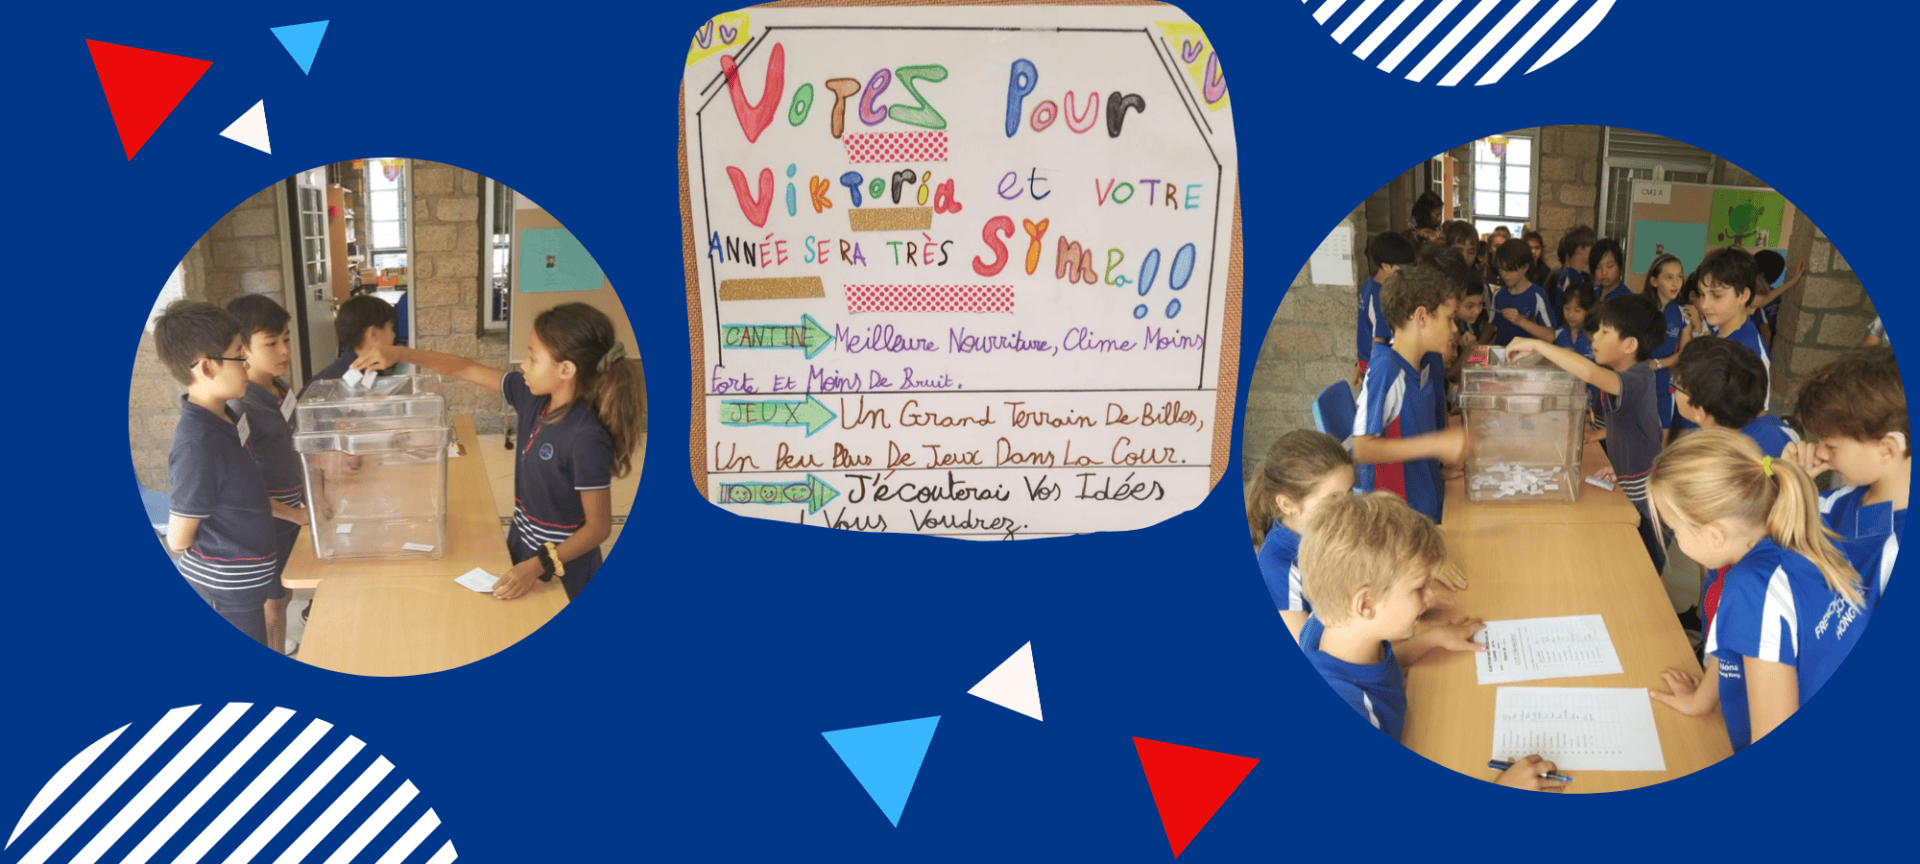 Votez Pour
Viktoria et VOTRE
ANNÉE SERA TRÈS SYMPa!!
CANTINE Meilleure Nourriture, Clime Moins
Forte Et Moins De Bruit.
JEUX Un Grand Terrain De Billes,
Un Peu Plus De Jeux Dans La Cour.
J'écouterai Vos Idées
Vous Voudrez.
CM1 A